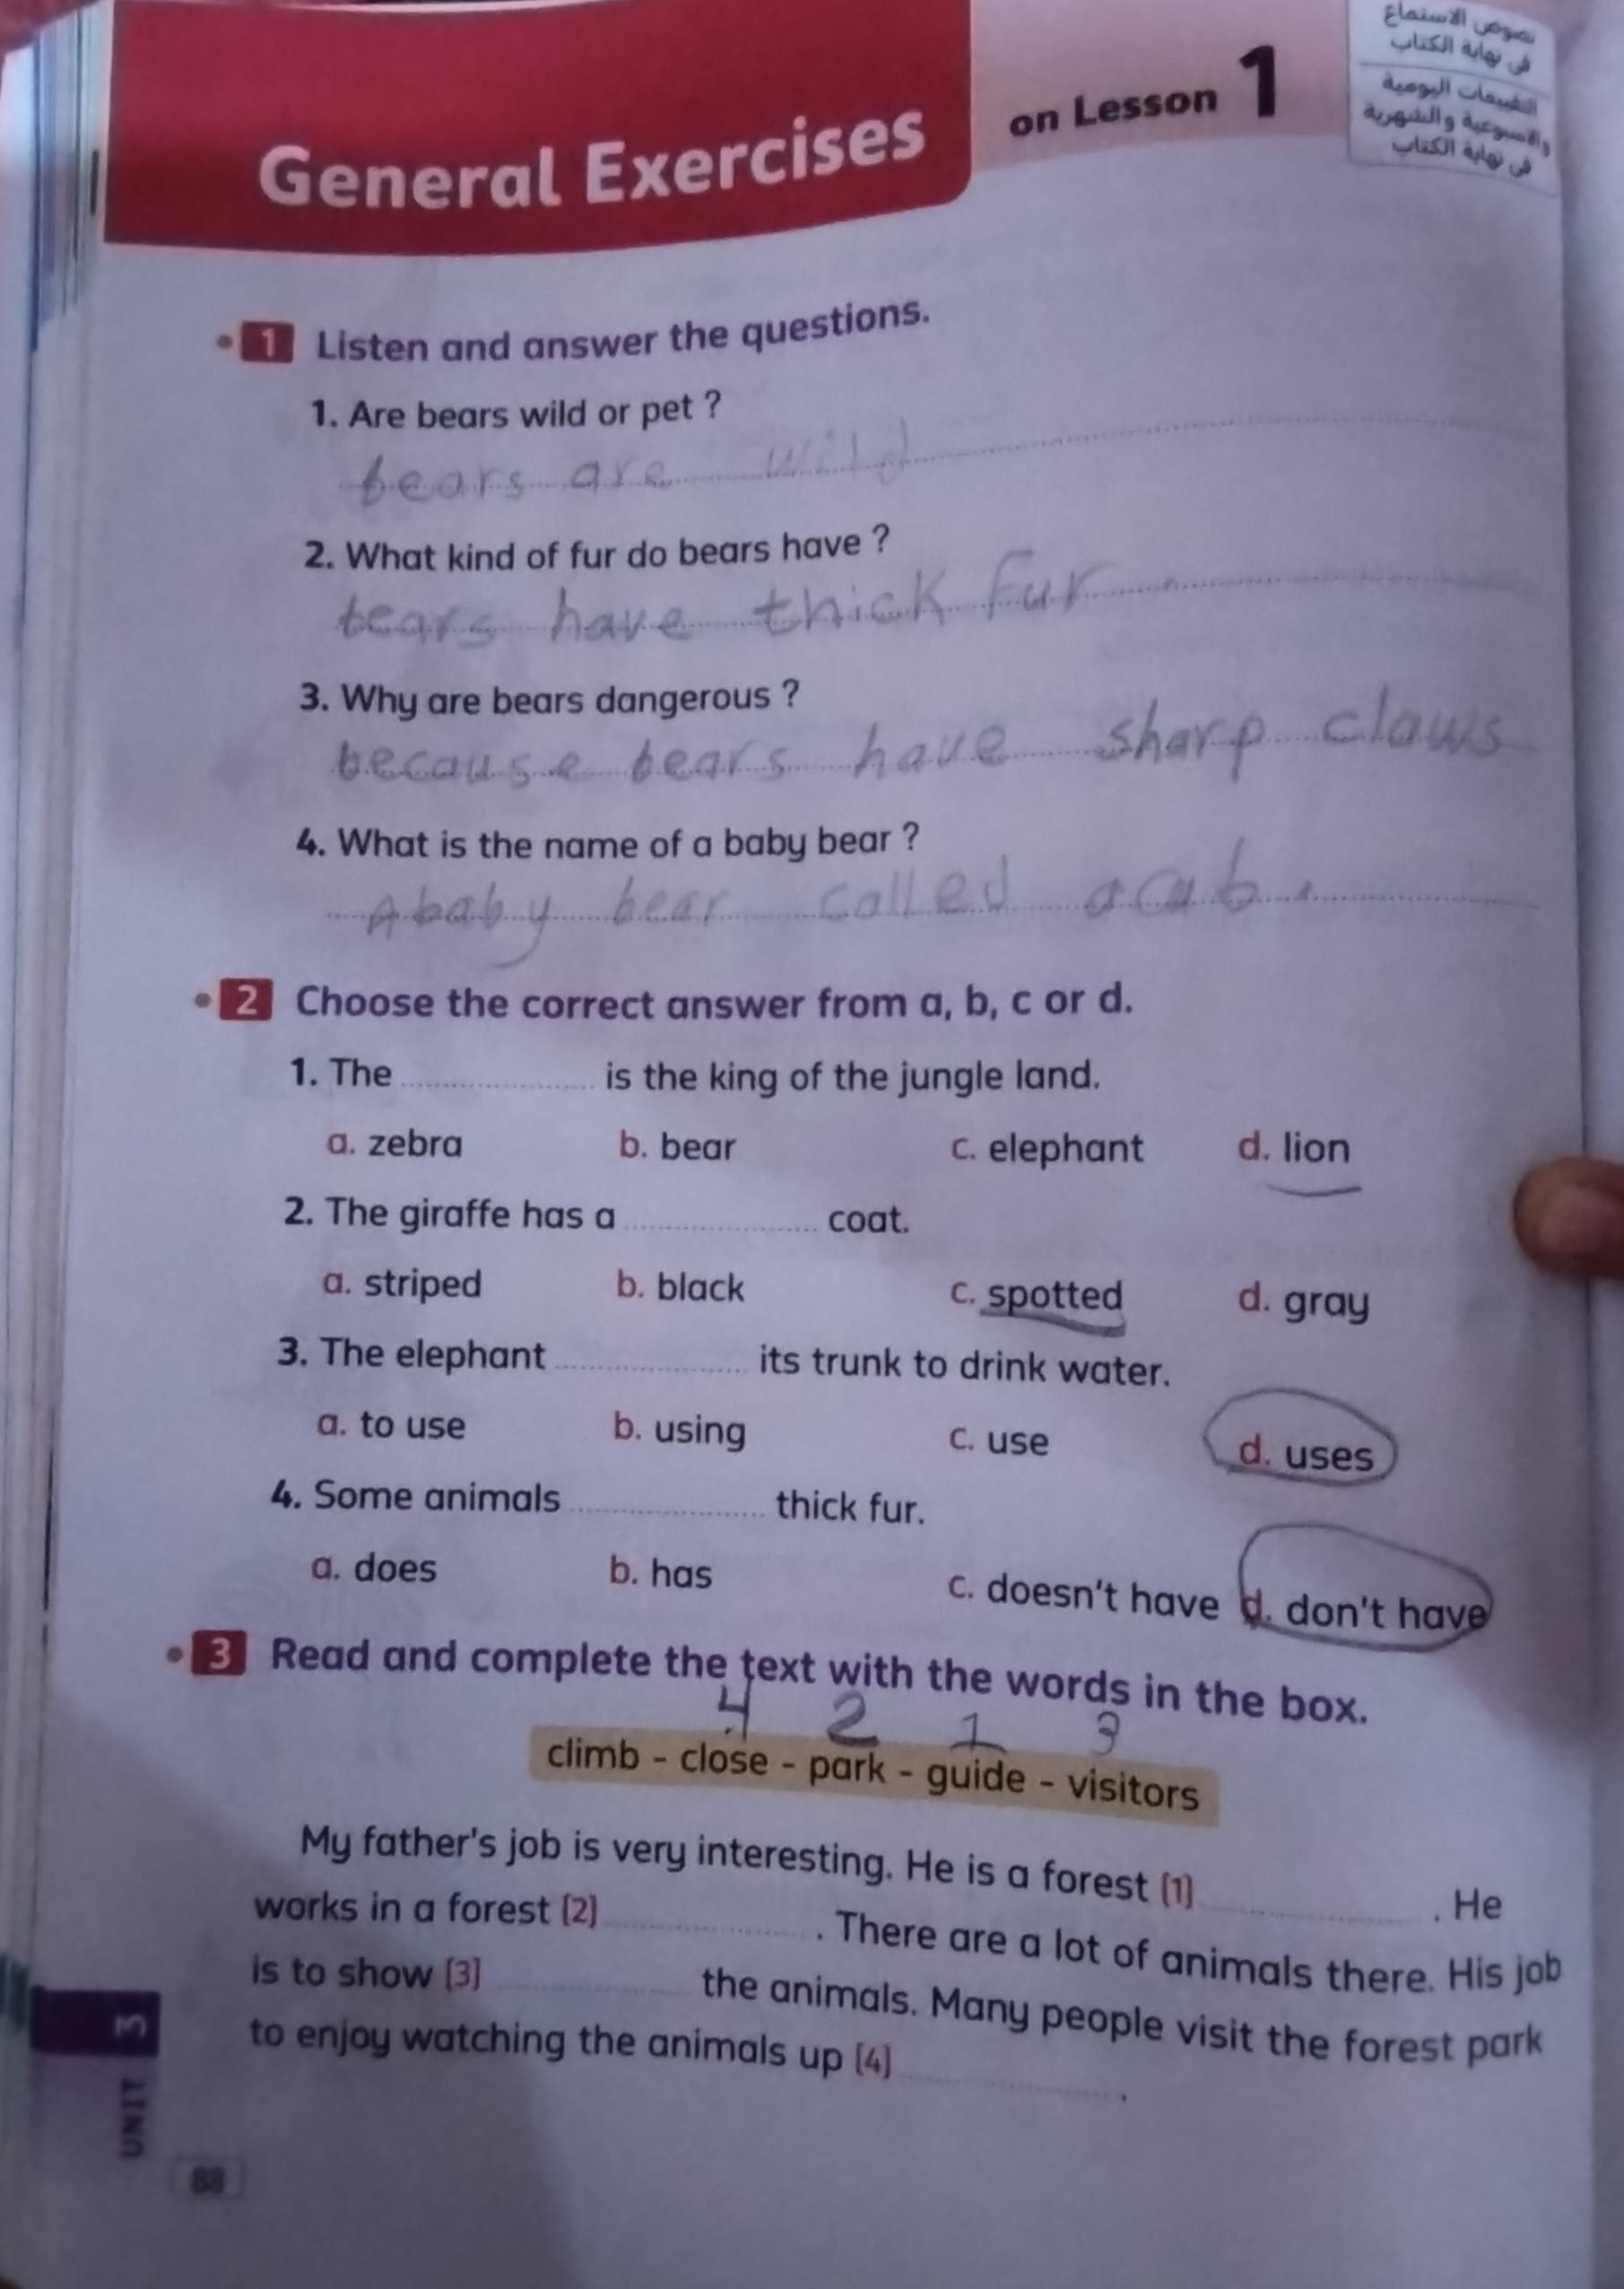 نصوص الاستماع
فى نهاية الكتاب
التقييمات اليومية
والأسبوعية والشهرية
فى نهاية الكتاب
General Exercises on Lesson 1
1 Listen and answer the questions.
1. Are bears wild or pet ?
bears are wild
2. What kind of fur do bears have ?
bears have thick fur
3. Why are bears dangerous ?
because bears have sharp claws
4. What is the name of a baby bear ?
A baby bear called a cub.
2 Choose the correct answer from a, b, c or d.
1. The .................... is the king of the jungle land.
a. zebra b. bear c. elephant d. lion
2. The giraffe has a .................... coat.
a. striped b. black c. spotted d. gray
3. The elephant .................... its trunk to drink water.
a. to use b. using c. use d. uses
4. Some animals .................... thick fur.
a. does b. has c. doesn't have d. don't have
3 Read and complete the text with the words in the box.
4 2 1 3
climb - close - park - guide - visitors
My father's job is very interesting. He is a forest (1) .................... . He
works in a forest (2) .................... . There are a lot of animals there. His job
is to show (3) .................... the animals. Many people visit the forest park
to enjoy watching the animals up (4) .................... .
UNIT 3
88